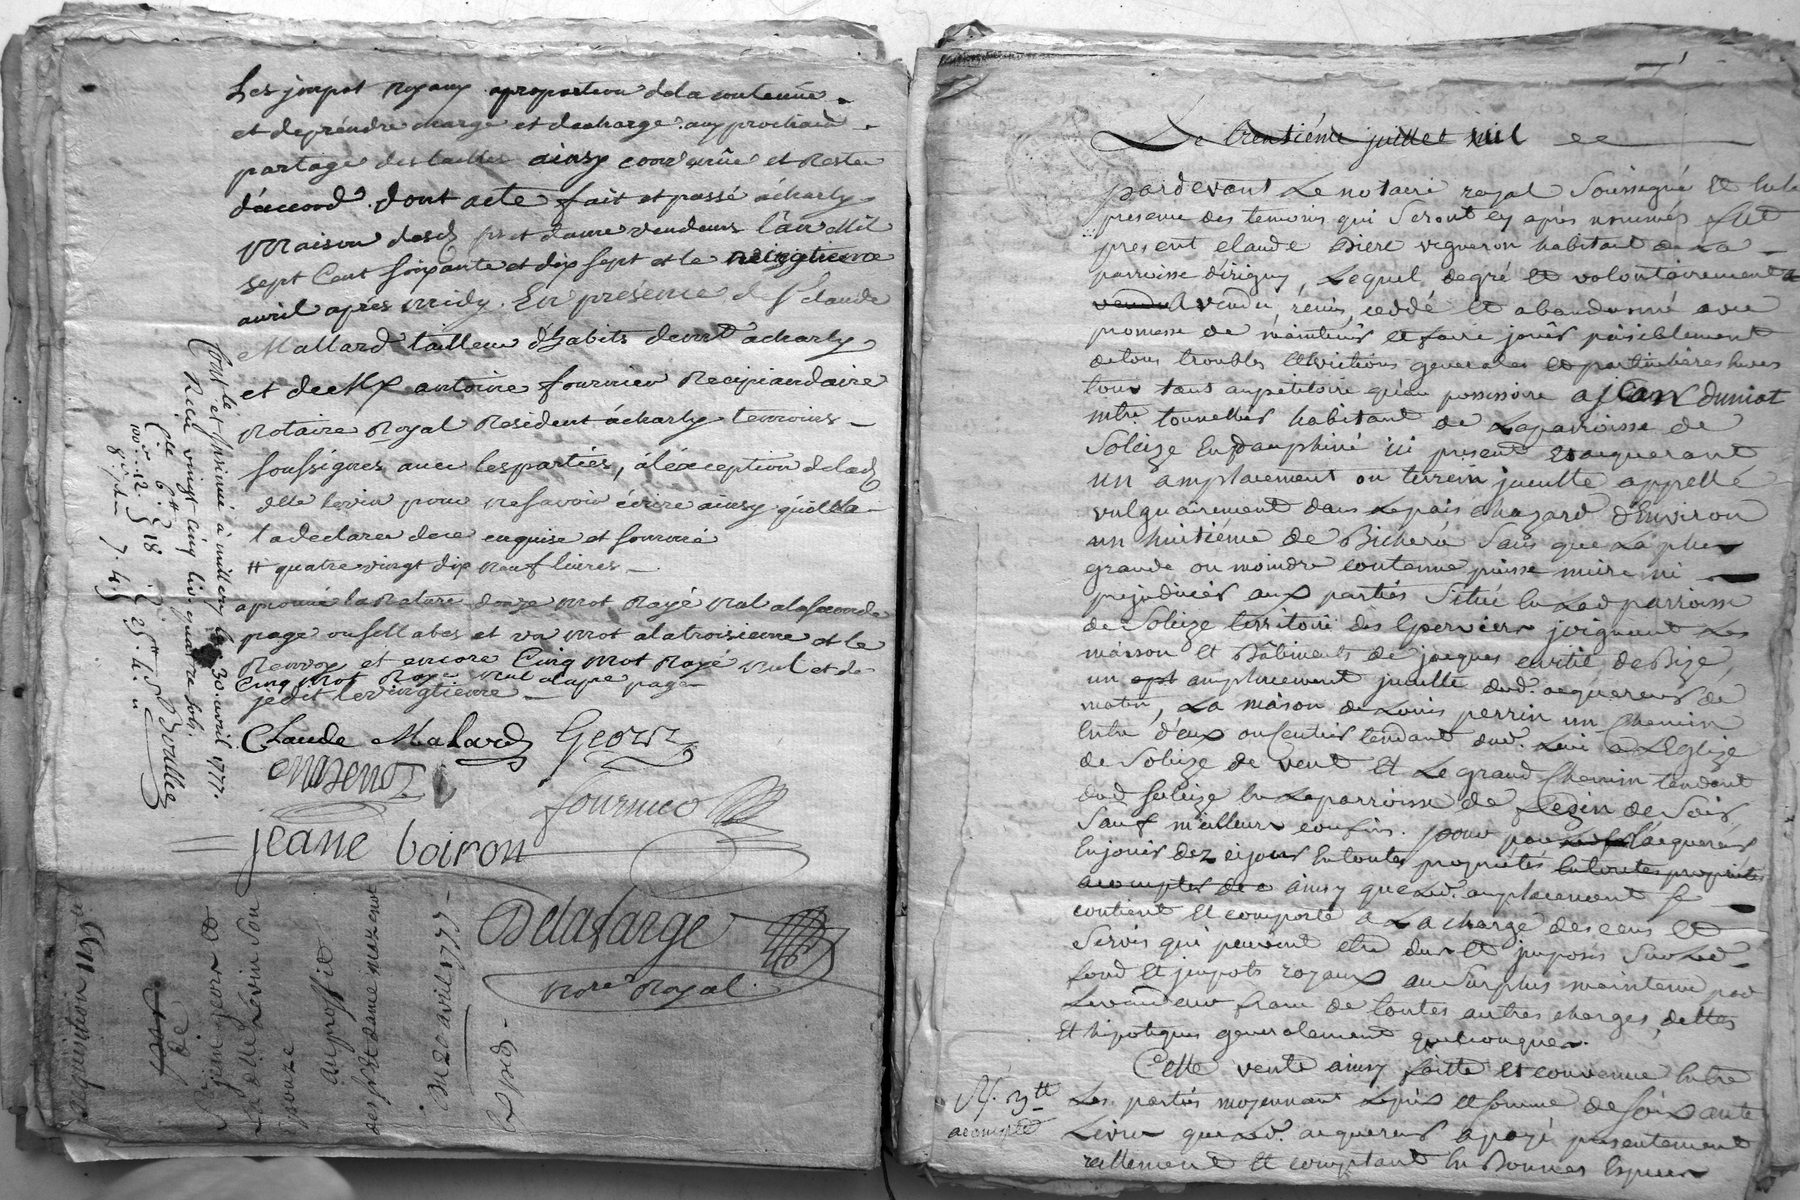 Les impot Royaux aproportion dela contenüe
et deprendre charge et decharge aux prochain
partage des tailles ainsy convenüe et Reste
d'accord. Dont acte fait et passé à charly
Maison desd. sr et dame vendeurs L'an Mil
sept Cent soixante et dix sept et le vingtieme
avril aprés midy. En présence de Sr. Claude
Mallard tailleur d'habits demt. à charly
et de Me antoine fournier Recipiendaire
Notaire Royal Resident à charly temoins
soussignés avec les parties, à l'exception de lad.
delle Levin pour ne savoir écrire ainsy qu'elle
la declarée de ce enquise et
# quatre vingt dix neuf livres
aprouvé la Rature douze mot Rayé Nul a la seconde
page ou sillabes et un mot a la troisieme et le
Renvoy et encore Cinq mot Rayé nul et de
Cinq mot Raye nul a la pe page
je dit le vingtieme
Claude Malard Geors
Mazenot
fournier
Jeane boiron
Delafarge
Nore Royal.
Contlé et Insinué à millery le 30. avril 1777.
Reçu vingt cinq liv. quatre sols.
Cle 6
8 s. p. 7. 4.
25 4 s.
acquisition
de
Jean geors et
La delle Levin son
epouze
au proffit
des sr. et dame mazenot
Du 20 avril 1777
Exped.
Le trentiéme juillet mil
pardevant Le notaire royal soussigné Et En la
presence des temoins qui seront cy après nommés fut
present claude Biere vigneron habitant de La
parroisse d'irigny, Lequel de gré Et volontairement a
vendu vendu, remis, ceddé Et abandonné avec
promesse de maintenir et faire jouir paisiblement
de tous troubles Evictions generales et particulieres envers
tous tant au petitoire qu'au possessoire a jean Duniat
mtre. tonnellier habitant de La parroisse de
Soleize En Dauphiné ici present Et acquerant
un amplacement ou terrein inculte appellé
vulguairement dans Le païs chazard d'Environ
un huitiéme de Bicherée sans que La plus
grande ou moindre contenue puisse nuire ni
prejudicier aux parties situé En Lad. parroisse
de Soleize territoire des Eperviers joignant Les
maison Et Bâtiments de jacques de Bize,
un amplacement inculte dud. acquereur de
matin, La maison de Louis perrin un Chemin
Entre d'eux ou Sentier tendant dud. Lieu a L'Eglize
de Soleize de vent Et Le grand Chemin tendant
dud. Soleize En La parroisse de de Soir,
Sauf meilleurs confins. pour par L'acquereur
En jouir dez cejour En toutes propriétés En toutes propriétés
acompter de ce ainsy que Led. amplacement se
contient Et comporte a La charge des cens Et
Servis qui peuvent etre dus Et imposés Sur Led.
fond Et impots royaux au Surplus maintenu par
Le vendeur franc de toutes autres charges, dettes
Et hipoteques generalement quelconques.
Cette vente ainsy faitte Et convenue Entre
Les parties moyennant Le prix Et somme de soixante
Livres que Led. acquereur a payé presentement
reellement Et comptant En Bonnes Especes
acompte